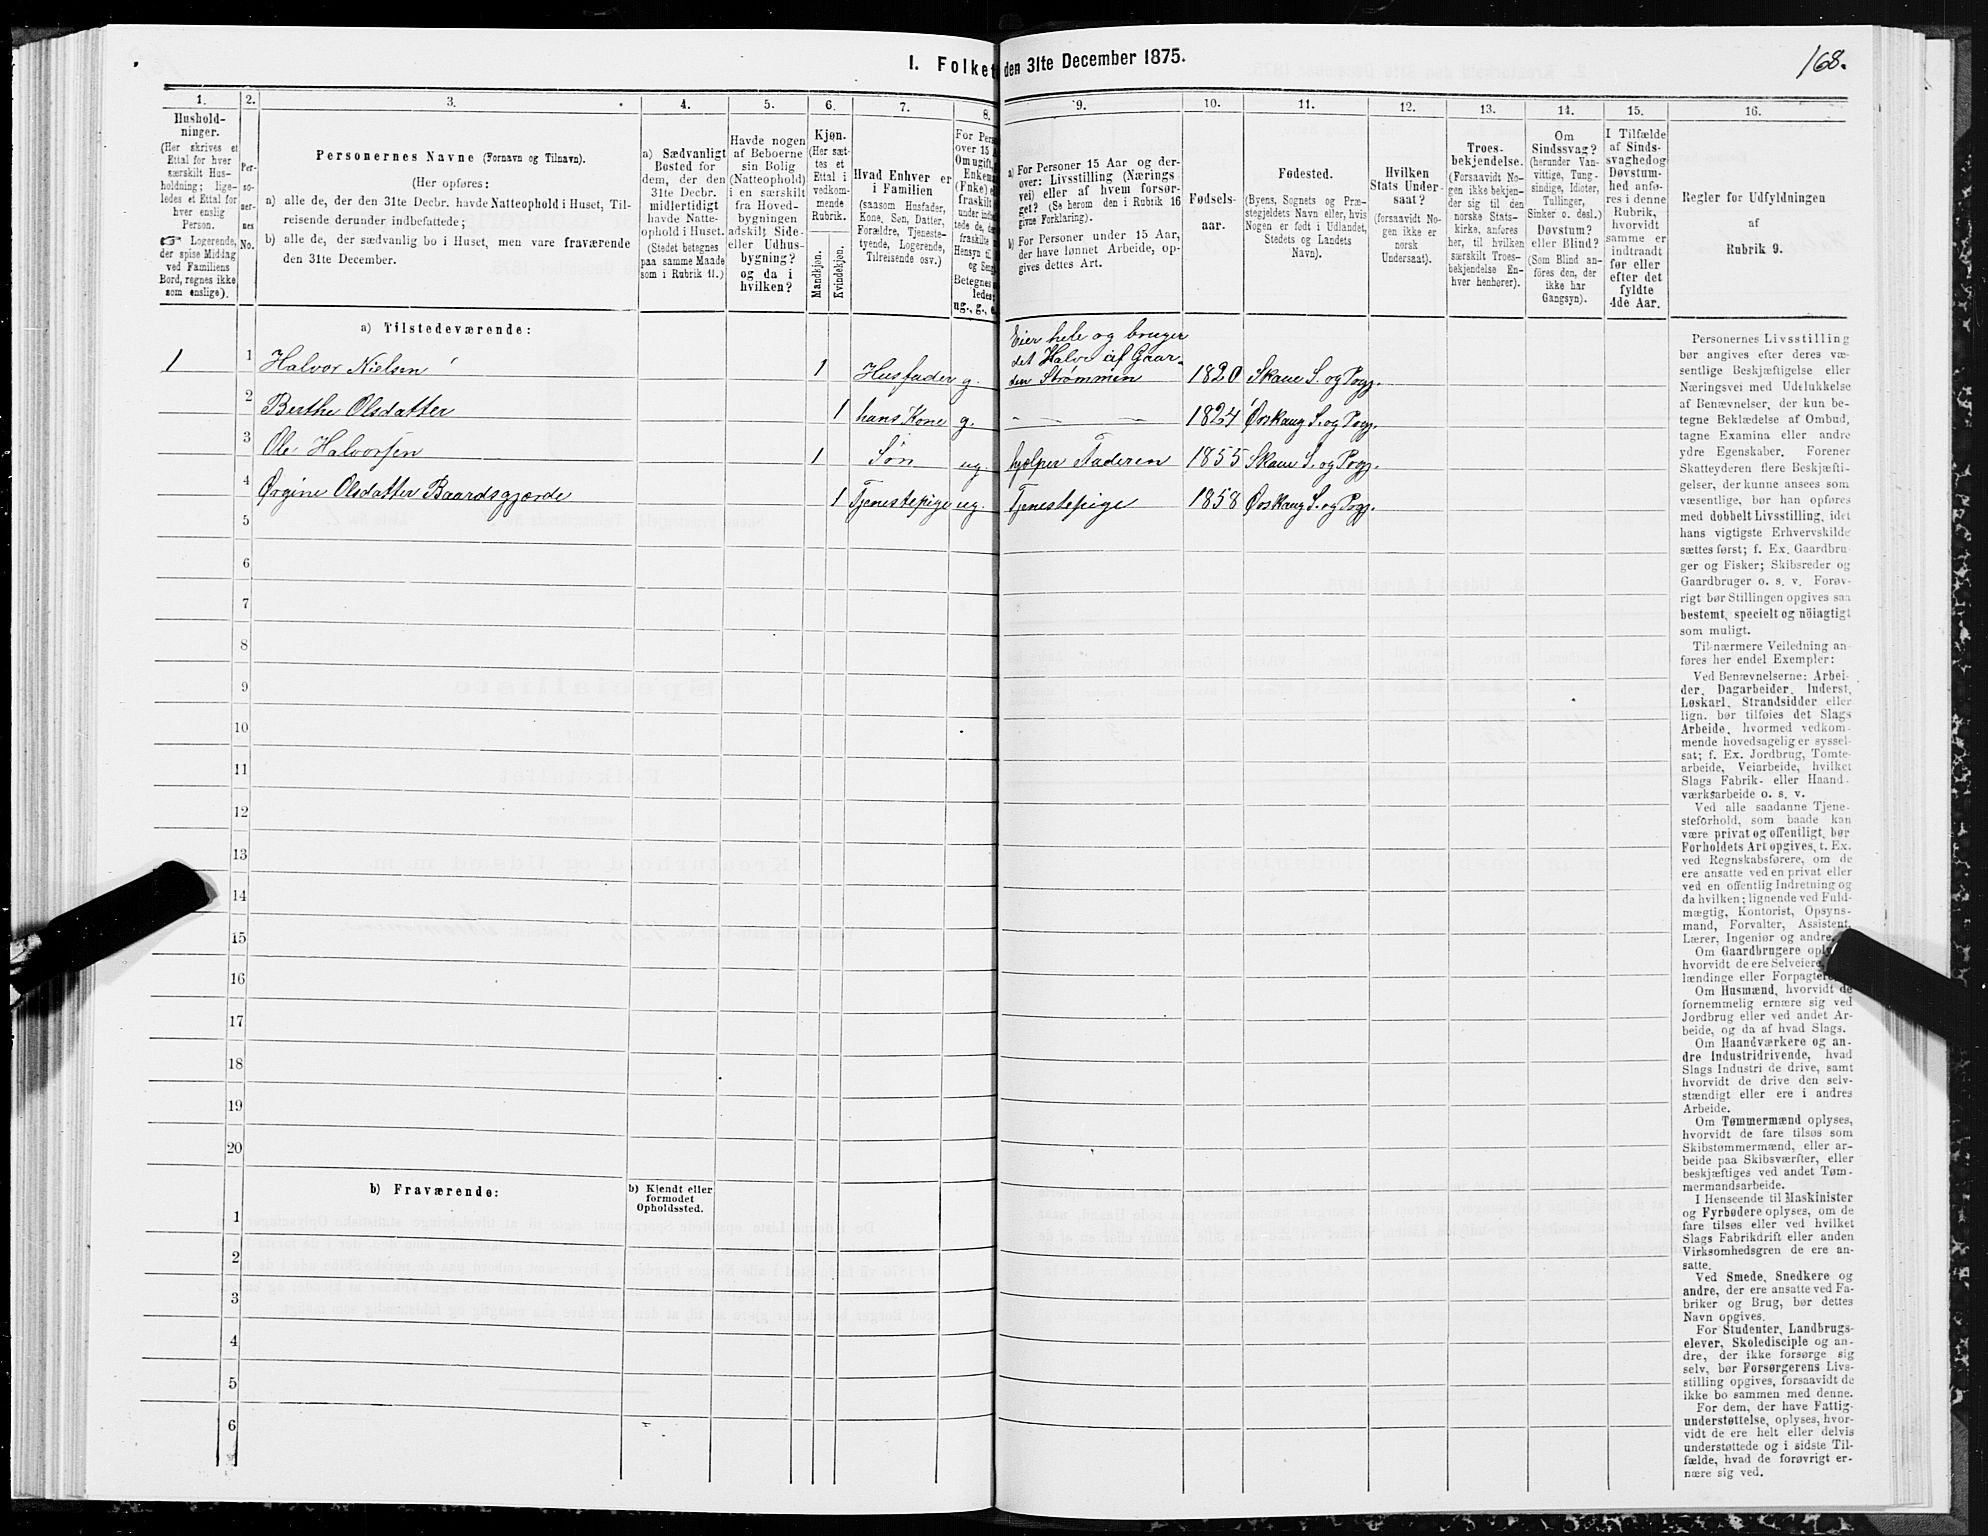 I. Folket
den 31te December 1875.
168.
1.
2.
3.
4.
5.
6.
7.
8.
9.
10.
11.
12.
13.
14.
15.
16.
Hushold-
ninger.
(Her skrives et
Ettal for hver
særskilt Hus-
holdning; lige-
ledes et Ettal for
hver enslig
Person.
☞ Logerende,
der spise Middag
ved Familiens
Bord, regnes ikke
som enslige).
Per-
so-
ner-
nes
No.
Personernes Navne (Fornavn og Tilnavn).
(Her opføres:
a) alle de, der den 31te Decbr. havde Natteophold i Huset, Til-
reisende derunder indbefattede;
b) alle de, der sædvanlig bo i Huset, men vare fraværende
den 31te December.
a) Sædvanligt
Bosted for
dem, der den
31te Decbr.
midlertidigt
havde Natte-
ophold i Huset.
(Stedet betegnes
paa samme Maade
som i Rubrik 11.)
Havde nogen
af Beboerne
sin Bolig
(Natteophold)
i en særskilt
fra Hoved-
bygningen
adskilt Side-
eller Udhus-
bygning?
og da i
hvilken?
Kjøn.
(Her sæt-
tes et
Ettal i
vedkom-
mende
Rubrik.
Mandkjøn.
Kvindekjøn.
Hvad Enhver er
i Familien
(saasom Husfader,
Kone, Søn, Datter,
Forældre, Tjeneste-
tyende, Logerende,
Tilreisende osv.)
For Pers
over 15 A
Om ugift,
Enkem
(Fnke) e
fraskilt
under indb
tede de, de
fraskilte
Hensyn til
og Seng
Betegnes
ledes:
ug., g.,
a) For Personer 15 Aar og der-
over: Livsstilling (Nærings
vei) eller af hvem forsør-
get? (Se herom den i Rubrik 16
givne Forklaring).
b) For Personer under 15 Aar,
der have lønnet Arbeide, op-
gives dettes Art.
Fødsels-
aar.
Fødested.
(Byens, Sognets og Præ-
stegjeldets Navn eller, hvis
Nogen er født i Udlandet,
Stedets og Landets
Navn).
Hvilken
Stats Under-
saat?
(forsaavidt No-
gen ikke er
norsk
Undersaat).
Troes-
bekjendelse.
(Forsaavidt No-
gen ikke bekjen-
der sig til den
norske Stats-
kirke, anføres
her, til hvilken
særskilt Troes-
bekjendelse En-
hver henhører).
Om
Sindssvag?
(herunder Van-
vittige, Tung-
sindige, Idioter,
Tullinger,
Sinker o. desl.)
Døvstum?
eller Blind?
(Som Blind an-
føres den, der
ikke har
Gangsyn).
I Tilfælde
af Sinds-
svaghed og
Døvstum-
hed anfø-
res i denne
Rubrik,
hvorvidt
samme er
indtraadt
før eller
efter det
fyldte
4de Aar.
Regler for Udfyldningen
af
Rubrik 9.
a) Tilstedeværende:
1 1 Halvor Nielsen 1 Husfader g. Eier hele og bruger
det Halve af Gaar-
den Strømmen 1820 Skaue S. og Pgj.
2 Berthe Olsdatter 1 hans Kone g. — — 1824 Ørskaug S. og Pgj.
3 Ole Halvorsen 1 Søn ug. hjælper Faderen 1855 Skaue S. og Pgj.
4 Ørgine Olsdatter Baardsgjærde 1 Tjenestepige ug. Tjenestepige 1858 Ørskaug S. og Pgj.
5
6
7
8
9
10
11
12
13
14
15
16
17
18
19
20
b) Fraværende:
b) Kjendt eller
formodet
Opholdssted.
1
2
3
4
5
6
Personernes Livsstilling
bør angives efter deres væ-
sentlige Beskjæftigelse eller
Næringsvei med Udelukkelse
af Benævnelser, der kun be-
tegne Beklædelse af Ombud,
tagne Examina eller andre
ydre Egenskaber. Forener
Skatteyderen flere Beskjæfti-
gelser, der kunne ansees som
væsentlige, bør han opføres
med dobbelt Livsstilling, idet
hans vigtigste Erhvervskilde
sættes først; f. Ex. Gaardbru-
ger og Fisker; Skibsreder og
Gaardbruger o. s. v. Forøv-
rigt bør Stillingen opgives saa
bestemt, specielt og nöiagtigt
som muligt.
Til nærmere Veiledning an-
føres her endel Exempler:
Ved Benævnelserne: Arbei-
der, Dagarbeider, Inderst,
Løskarl, Strandsidder eller
lign. bør tilføies det Slags
Arbeide, hvormed vedkom-
mende hovedsagelig er syssel-
sat; f. Ex. Jordbrug, Tomte-
arbeide, Veiarbeide, hvilket
Slags Fabrik- eller Haand-
værksarbeide o. s. v.
Ved alle saadanne Tjene-
steforhold, som baade kan
være privat og offentligt, bør
Forholdets Art opgives, t. Ex.
ved Regnskabsførere, om de
ere ansatte ved en privat eller
ved en offentlig Indretning og
da hvilken; lignende ved Fuld-
mægtig, Kontorist, Opsyns-
mand, Forvalter, Assistent,
Lærer, Ingeniør og andre.
Om Gaardbrugere oply-
hvorvidt de ere Selveiere,
lændinge eller Forpagtere.
Om Husmænd, hvorvidt de
fornemmelig ernære sig ved
Jordbrug eller ved andet Ar-
beide, og da af hvad Slags.
Om Haandværkere og an-
dre Industridrivende, hvad
Slags Industri de drive, samt
hvorvidt de drive den selv-
stændigt eller ere i andres
Arbeide.
Om Tømmermænd oplyses,
hvorvidt de fare tilsøs som
Skibstømmermænd, eller ar-
beide paa Skibsværfter, eller
beskjæftiges ved andet Tøm-
mermandsarbeide.
I Henseende til Maskinister
og Fyrbødere oplyses, om de
fare tilsøs eller ved hvilket
Slags Fabrikdrift eller anden
Virksomhedsgren de ere an-
satte.
Ved Smede, Snedkere og
andre, der ere ansatte ved Fa-
briker og Brug, bør dettes
Navn opgives.
For Studenter, Landbrugs-
elever, Skoledisciple og an-
dre, der ikke forsørge sig
selv, bør Forsørgerens Livs-
stilling opgives, forsaavidt de
ikke bo sammen med denne.
For dem, der have Fattig-
understøttelse, oplyses, hvor-
vidt de ere helt eller delvis
understøttede og i sidste Til-
fælde, hvad de forøvrigt er-
nære sig ved.